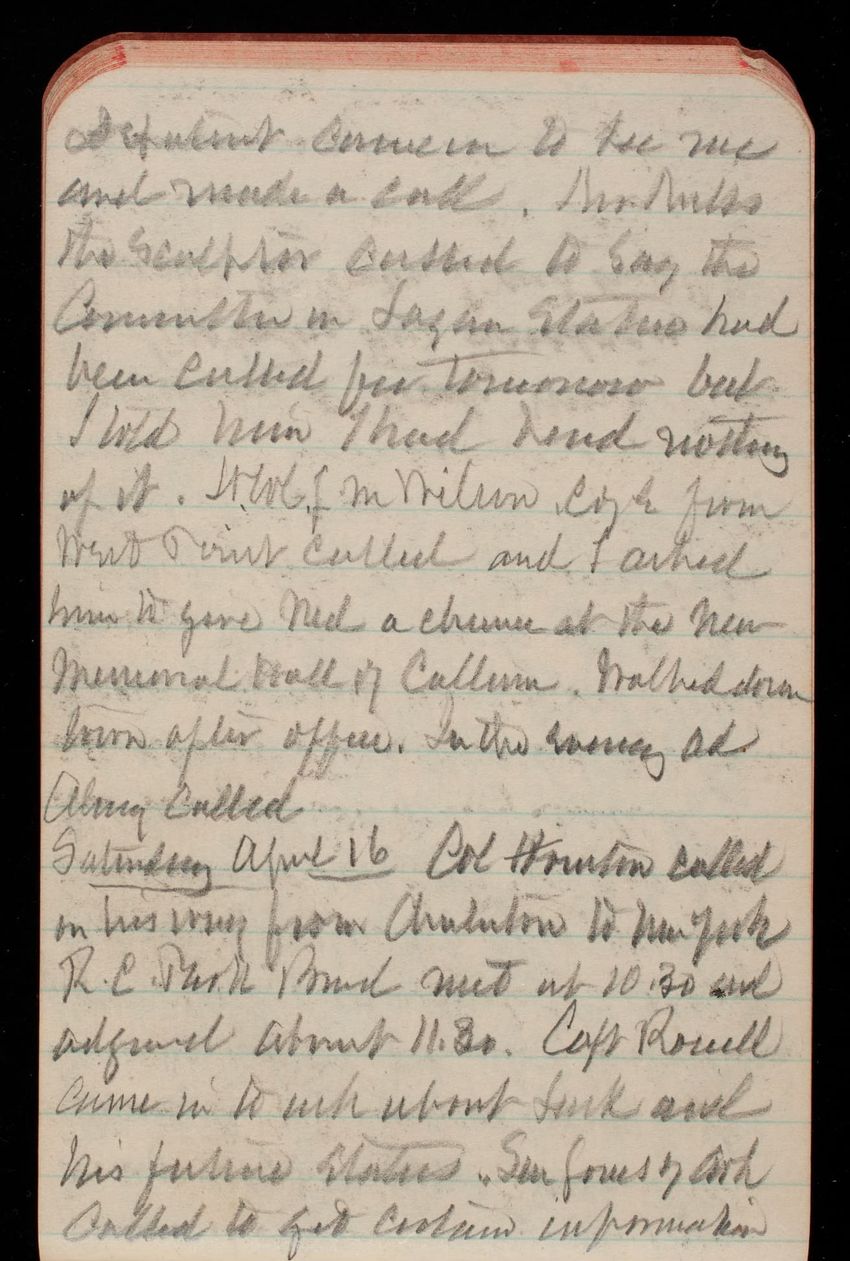 came in to see me
and made a call. Mr
the Sculptor called to say the
Committee on Logan Statue had
been called for tomorrow but
I told him I had heard nothing
of it. Lt Col J M Wilson Col E from
West Point called and I asked
him to give Ned a chance at the new
Memorial Hall of Cullum. Walked down
town after office. In the evening
Almy called
Saturday April 16 Col Houston called
on his way from Charleston to New York
R. C. Park Board met at 10.30 and
adjourned about 11.30. Capt Powell
came in to ask about and
his future status. Sen Jones of Ark
Called to get certain information